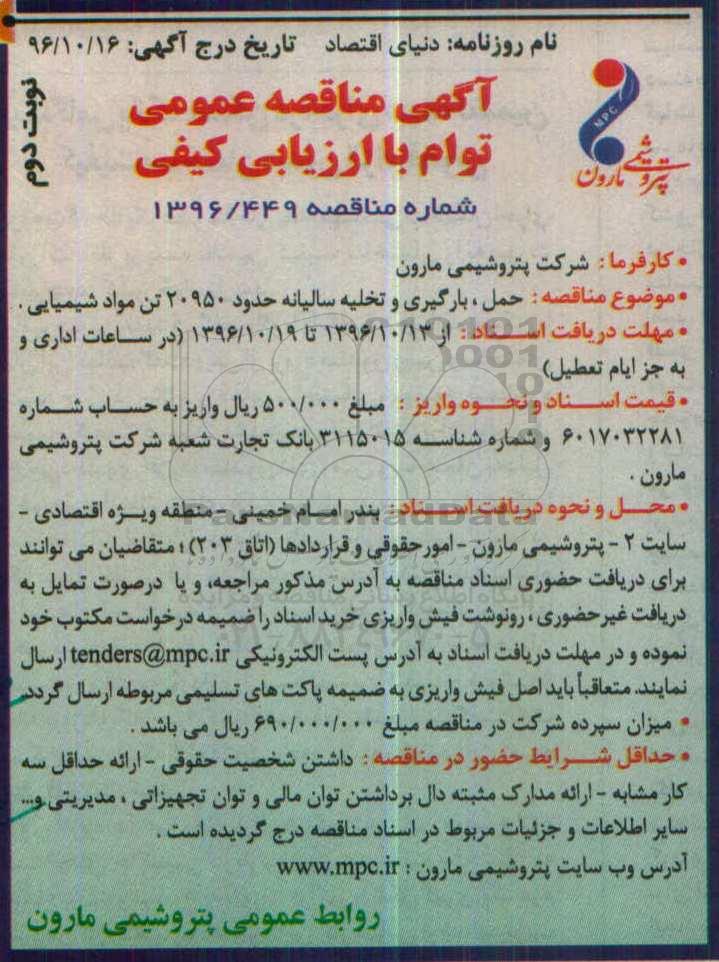 نام روزنامه: دنیای اقتصاد تاریخ درج آگهی: ۹۶/۱۰/۱۶
نوبت دوم
MPC
پتروشیمی مارون
آگهی مناقصه عمومی
توام با ارزیابی کیفی
شماره مناقصه ۱۳۹۶/۴۴۹
• کارفرما: شرکت پتروشیمی مارون
• موضوع مناقصه: حمل، بارگیری و تخلیه سالیانه حدود ۲۰۹۵۰ تن مواد شیمیایی.
• مهلت دریافت اسناد: از ۱۳۹۶/۱۰/۱۳ تا ۱۳۹۶/۱۰/۱۹ (در ساعات اداری و
به جز ایام تعطیل)
• قیمت اسناد و نحوه واریز: مبلغ ۵۰۰/۰۰۰ ریال واریز به حساب شماره
۶۰۱۷۰۳۲۲۸۱ و شماره شناسه ۳۱۱۵۰۱۵ بانک تجارت شعبه شرکت پتروشیمی
مارون.
• محل و نحوه دریافت اسناد: بندر امام خمینی - منطقه ویژه اقتصادی -
سایت ۲ - پتروشیمی مارون - امور حقوقی و قراردادها (اتاق ۲۰۳)؛ متقاضیان می توانند
برای دریافت حضوری اسناد مناقصه به آدرس مذکور مراجعه، و یا درصورت تمایل به
دریافت غیرحضوری، رونوشت فیش واریزی خرید اسناد را ضمیمه درخواست مکتوب خود
نموده و در مهلت دریافت اسناد به آدرس پست الکترونیکی tenders@mpc.ir ارسال
نمایند. متعاقباً باید اصل فیش واریزی به ضمیمه پاکت های تسلیمی مربوطه ارسال گردد.
• میزان سپرده شرکت در مناقصه مبلغ ۶۹۰/۰۰۰/۰۰۰ ریال می باشد.
• حداقل شرایط حضور در مناقصه: داشتن شخصیت حقوقی - ارائه حداقل سه
کار مشابه - ارائه مدارک مثبته دال برداشتن توان مالی و توان تجهیزاتی، مدیریتی و...
سایر اطلاعات و جزئیات مربوط در اسناد مناقصه درج گردیده است.
آدرس وب سایت پتروشیمی مارون: www.mpc.ir
روابط عمومی پتروشیمی مارون
ParsNamadData